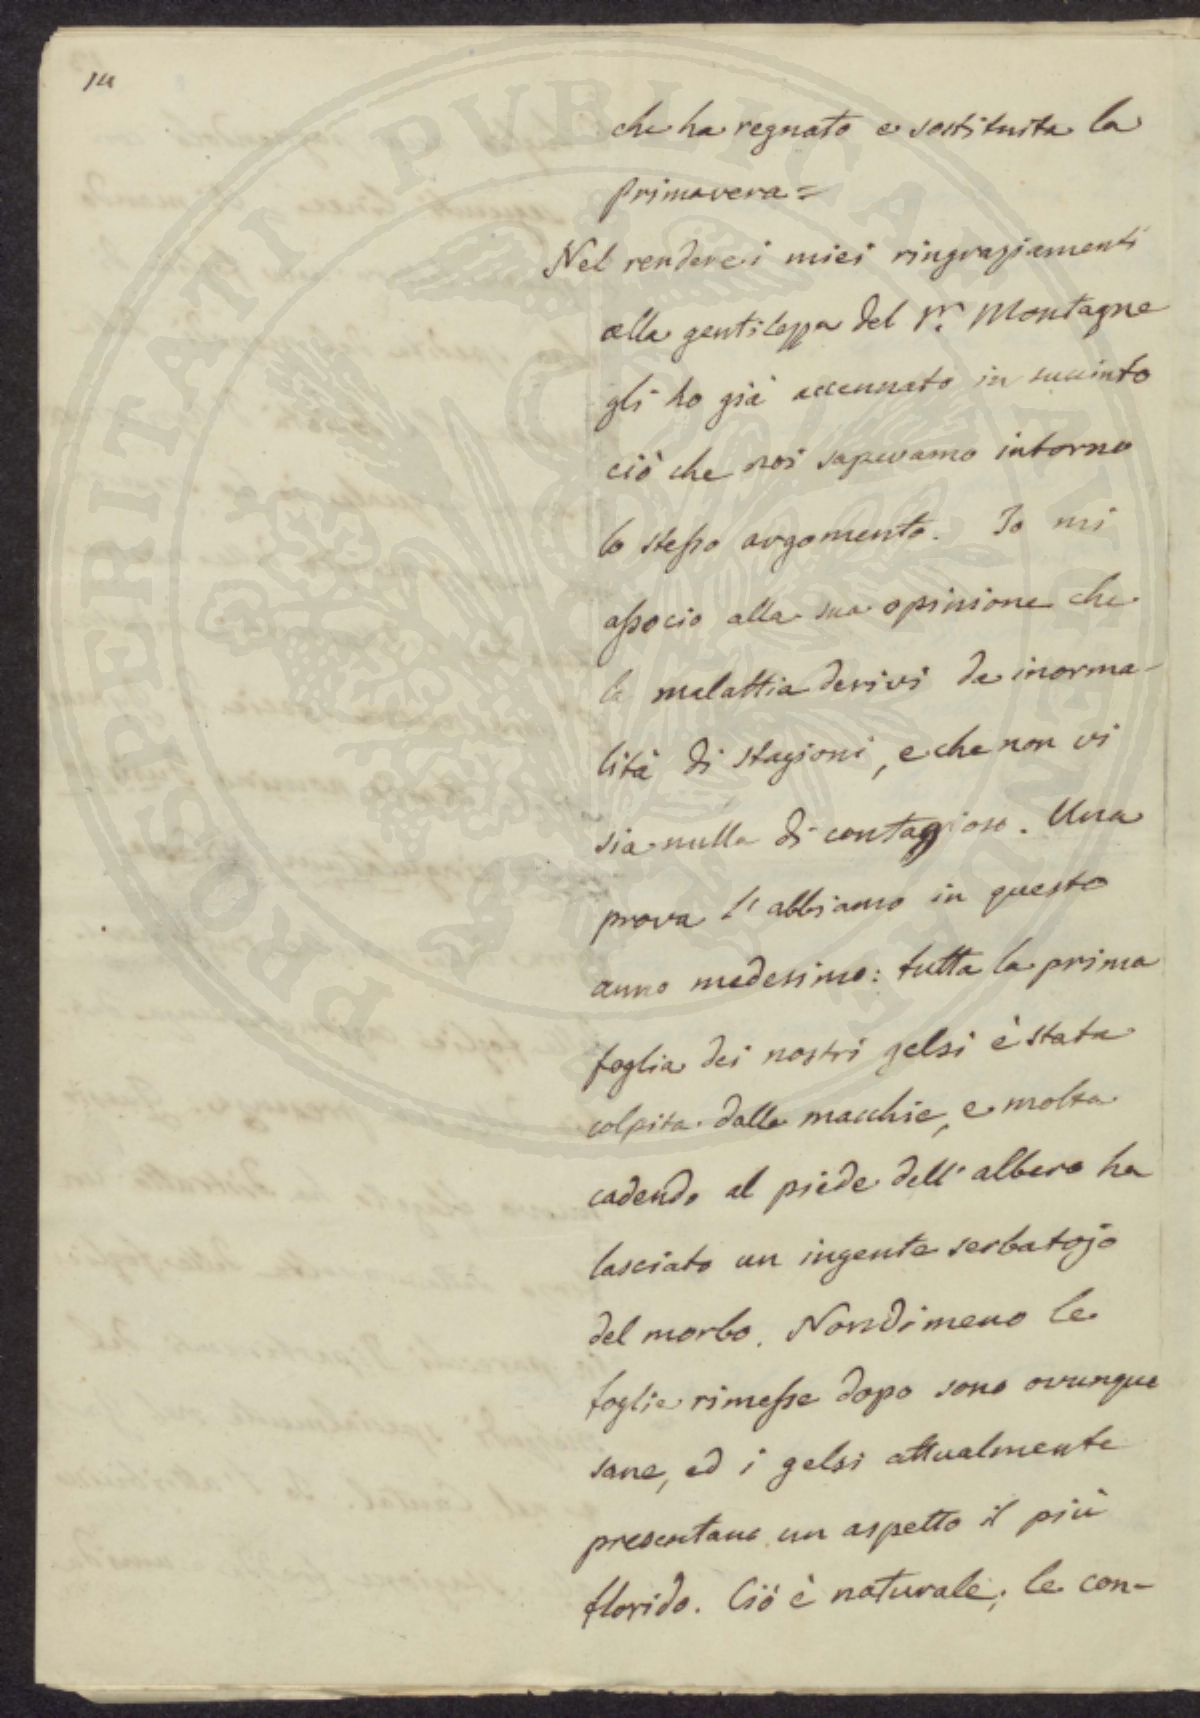 14
che ha regnato e sostituita la
primavera =
Nel rendere i miei ringraziamenti
alla gentilezza del Sr. Montagne
gli ho già accennato in succinto
ciò che noi sapevamo intorno
lo stesso argomento. Io mi
associo alla sua opinione che
la malattia derivi da inorma-
lità di stagioni, e che non vi
sia nulla di contagioso. Una
prova l'abbiamo in questo
anno medesimo: tutta la prima
foglia dei nostri gelsi è stata
colpita dalle macchie, e molta
cadendo al piede dell'albero ha
lasciato un ingente serbatojo
del morbo. Nondimeno le
foglie rimesse dopo sono ovunque
sane, ed i gelsi attualmente
presentano un aspetto il più
florido. Ciò è naturale; le con-
PROSPERITATI PUBLICAE AUGENDAE